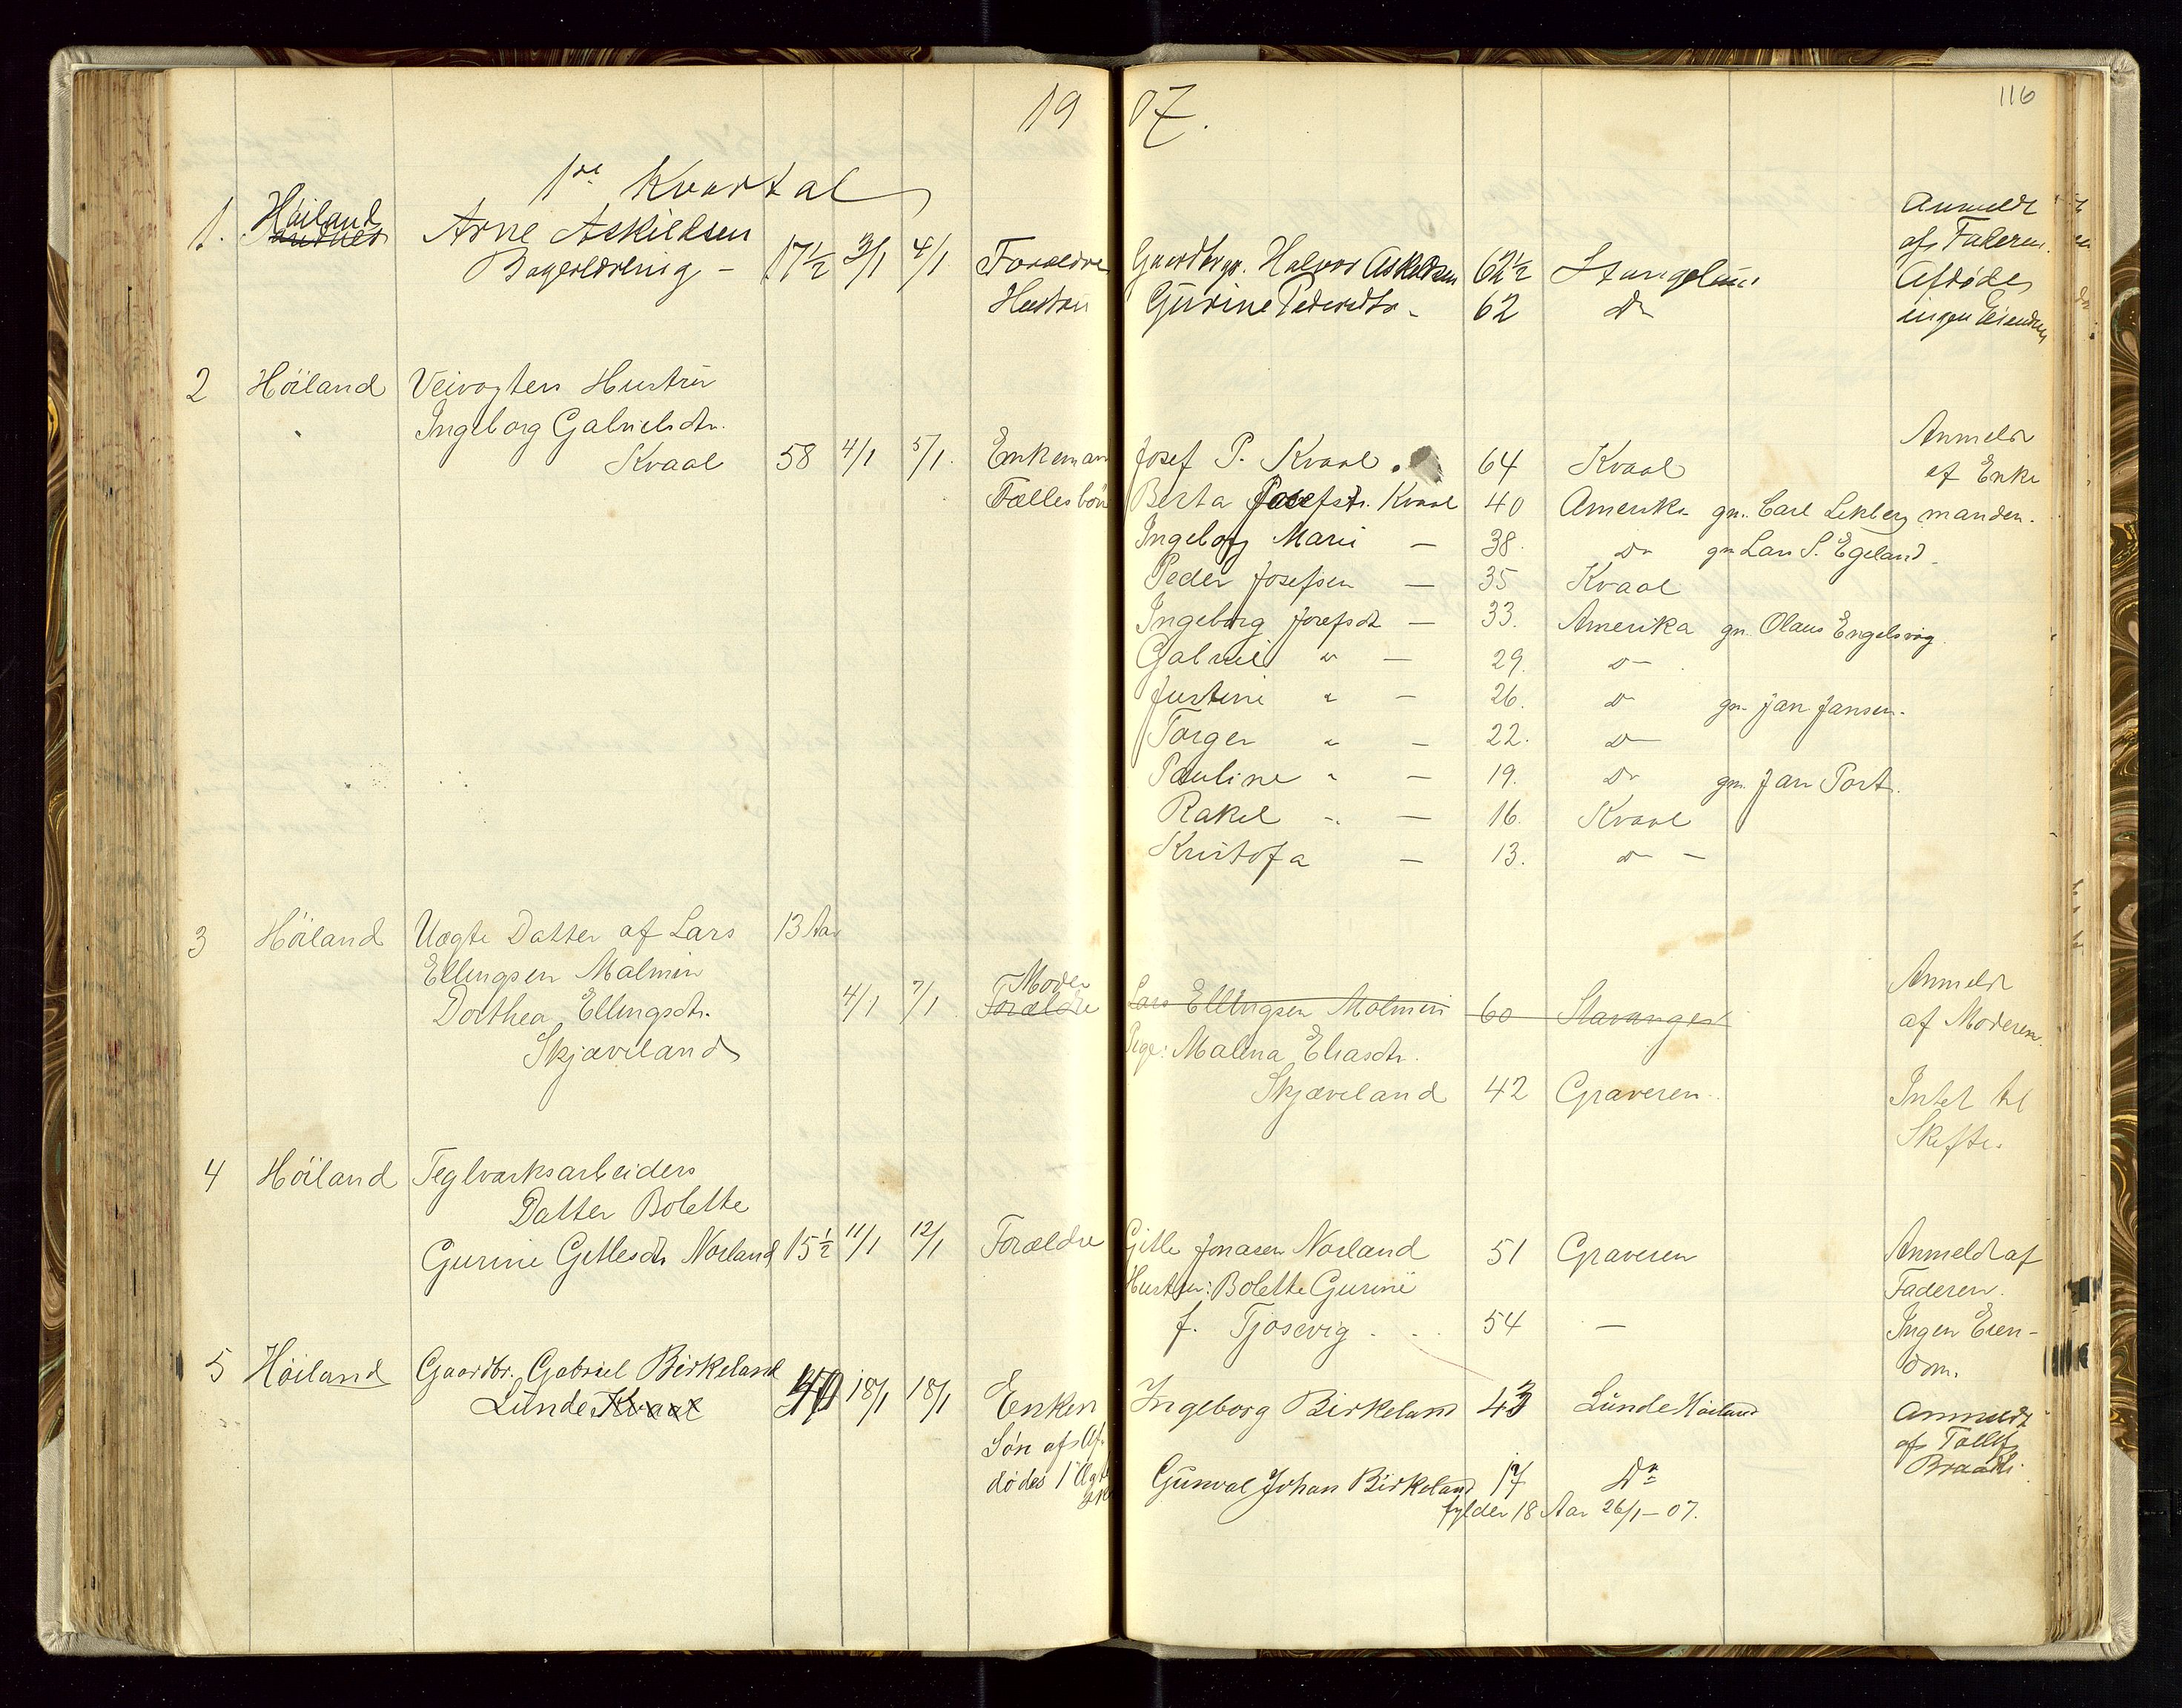 19 07.
116
1ste Kvartal
1. Höiland Sandnes Arne Askildsen
Bagerlærling - 17½ 3/1 4/1 Forældre Gaardbrgr. Halvor Askildsen 62½ Stangeland Anmeldt
af Faderen.
Hustru Gurine Pedersdtr. - 62 Do Afdøde
ingen Eiendom
2 Höiland Veivogters Hustru
Ingeborg Gabrielsdtr.
Kvaal 58 4/1 5/1. Enkemand Josef P. Kvaal. 64 Kvaal Anmeldt
af Enke
Fællesbörn Berta Josefsdtr. Kvaal 40 Amerika gm. Carl Lekberg manden.
Ingeborg Marie — 38. Do gm Lars S. Egeland
Peder Josefsen — 35 Kvaal
Ingeborg Josefsdt — 33. Amerika gm. Olaus Engelsvig.
Gabriel " — 29. Do
Justine " — 26. Do gm. Jan Jansen.
Torger " — 22. Do
Pauline " — 19. Do gm. Jan Port.
Rakel " — 16. Kvaal
Kristofa — 13. Do —
3 Höiland Uægte Datter af Lars 13 Aar
Ellingsen Malmin
Dorthea Ellingsdtr. 4/1 7/1 Moder Forældre Lars Ellingsen Malmin 60 Stavanger Anmeldt
af Moderen.
Skjæveland Pige: Malena Eliasdtr.
Skjæveland 42 Graveren. Intet til
Skifte.
4 Höiland Teglværksarbeiders
Datter Bolette
Gurine Gitlesdtr Norland 15½ 11/1 12/1 Forældre Gitle Jonasen Norland 51 Graveren Anmeldt af
Hustru: Bolette Gurine Faderen.
f. Tjosevig . . . 54 — Ingen Eien-
dom.
5 Höiland Gaardbr. Gabriel Birkeland
Lunde Kvaal 18/1 18/1 Enken Ingeborg Birkeland 43 Lunde Höiland Anmeldt
af Tollef
Sön af Af-
dödes 1' Ægte Gunval Johan Birkeland 17 Do
fylder 18 Aar 26/1-07.